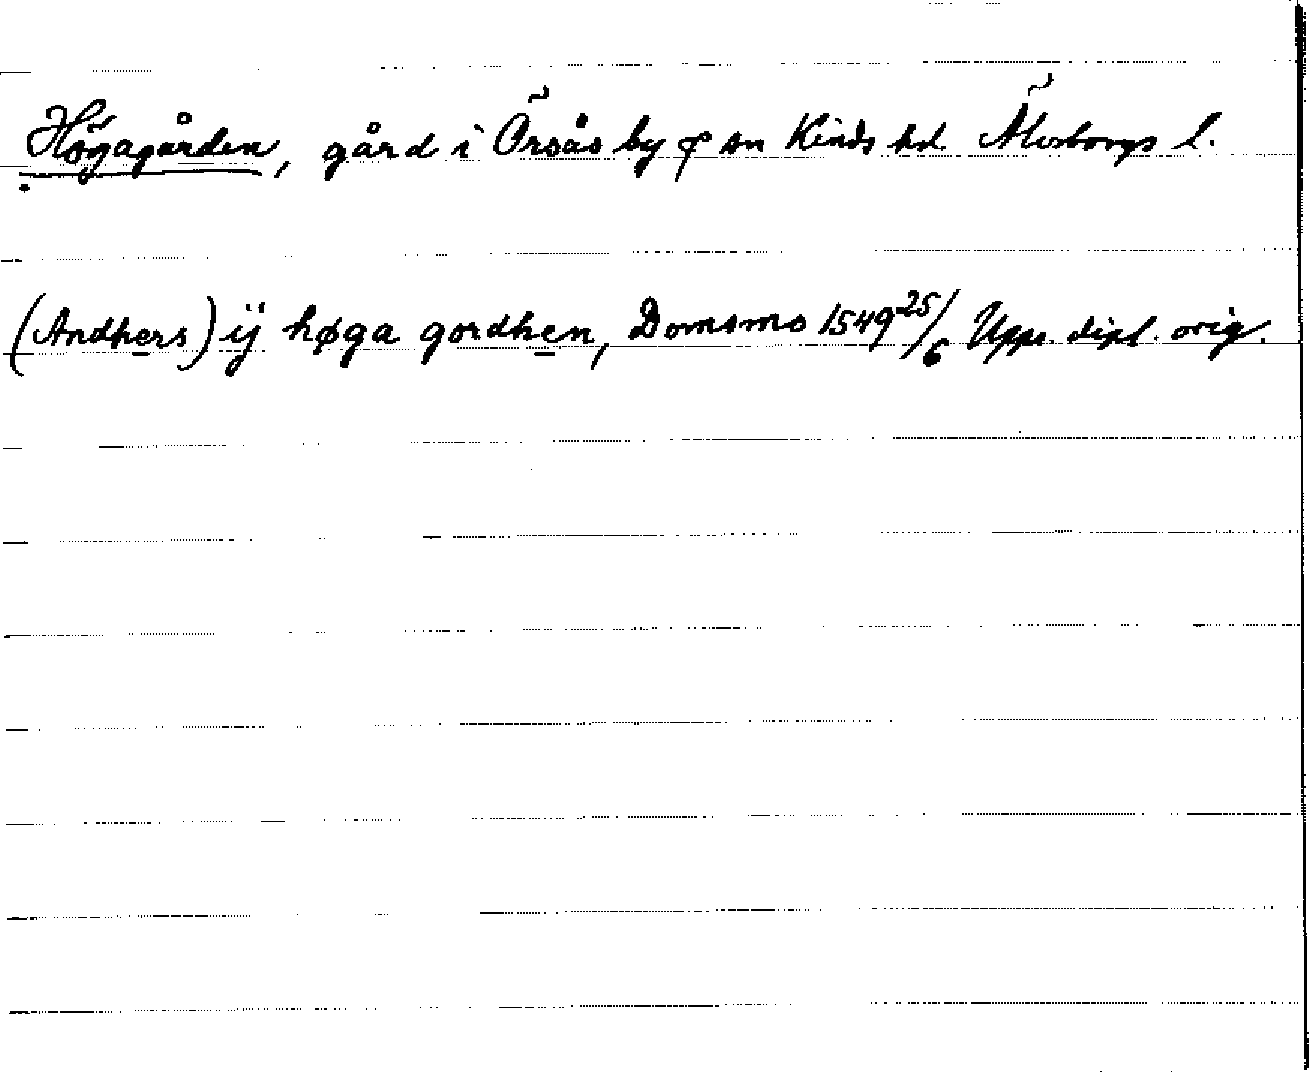 Högagården, gård i Örsås by ꝑ sn Kinds hd. Älvsborgs l.
(Andhers) ij høga gordhen, Domsmo 1549 25/6 Upps. dipl. orig.